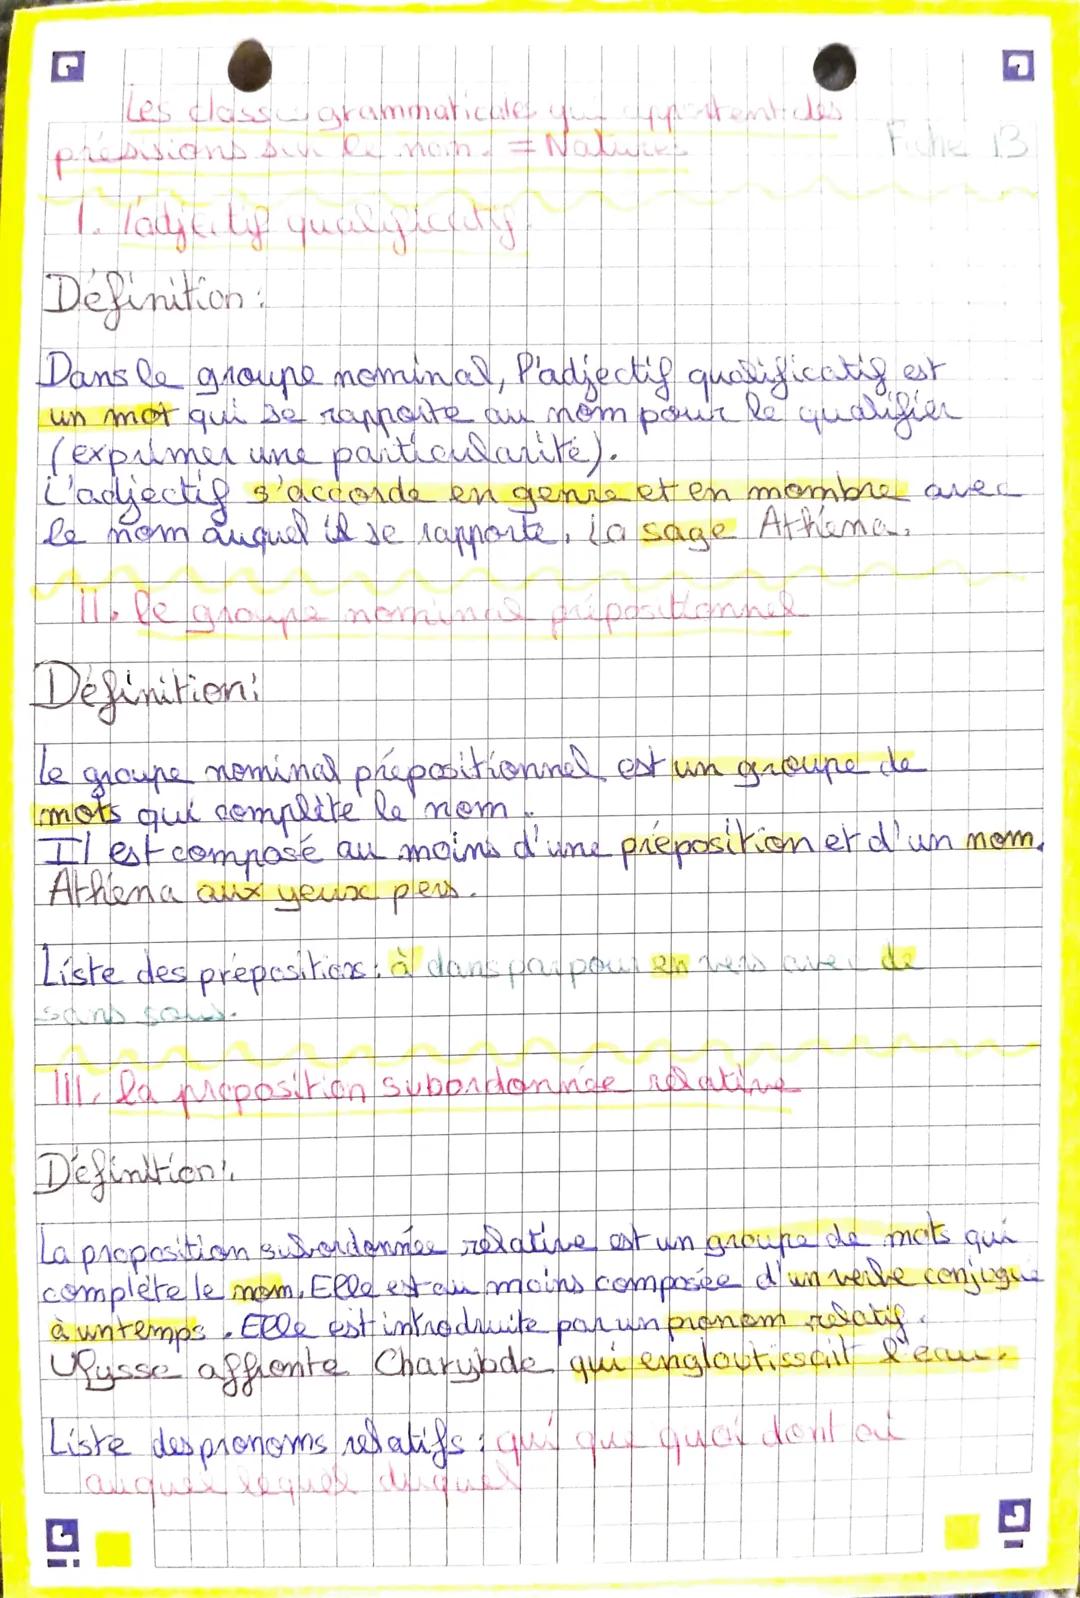 Les classe grammaticales qui apportent des
présisions sur le nom. = Natures
Fiche 13
I. l'adjectif qualificatif
Définition :
Dans le groupe nominal, l'adjectif qualificatif est
un mot qui se rapporte au nom pour le qualifier
(exprimer une particularité).
L'adjectif s'accorde en genre et en nombre avec
le nom auquel il se rapporte. La sage Athéna.
II. le groupe nominal prépositionnel
Définition:
Le groupe nominal prépositionnel est un groupe de
mots qui complète le nom.
Il est composé au moins d'une préposition et d'un nom.
Athéna aux yeux pers.
Liste des prépositions : à dans par pour en vers avec de
sans sous.
III. la proposition subordonnée relative
Définition:
La proposition subordonnée relative est un groupe de mots qui
complète le nom. Elle est au moins composée d'un verbe conjugué
à un temps. Elle est introduite par un pronom relatif.
Ulysse affronte Charybde qui engloutissait l'eau.
Liste des pronoms relatifs : qui que quoi dont où
auquel lequel duquel